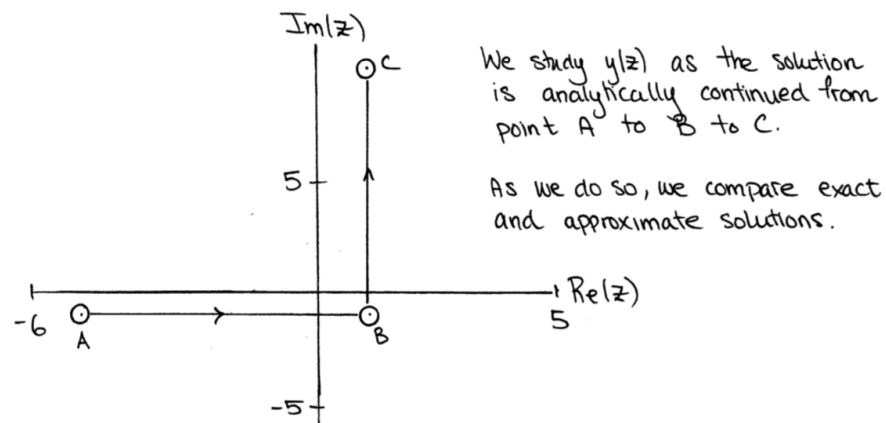 Im(z)
C
We study y(z) as the solution
is analytically continued from
point A to B to C.
5
As we do so, we compare exact
and approximate solutions.
Re(z)
-6
5
A
B
-5